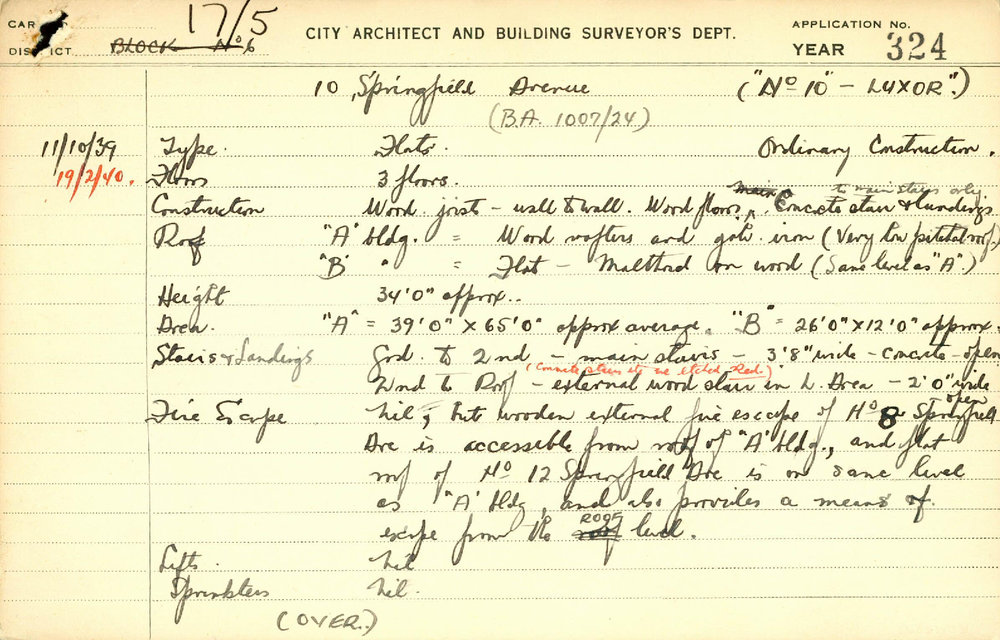 CARD
DISTRICT
17/5
BLOCK No 6
CITY ARCHITECT AND BUILDING SURVEYOR'S DEPT.
APPLICATION No.
YEAR 324
10, Springfield Avenue ("No 10" - LUXOR".)
(B.A. 1007/24)
11/10/39 Type. Flats. Ordinary Construction.
19/2/40. Floors 3 floors.
main to main stairs only
Construction Wood joists - wall to wall. Wood floors, Concrete stair & landings.
Roof "A" bldg. = Wood rafters and galv. iron (Very low pitched roof.)
"B" " = Flat - Malthoid on wood (Same level as "A".)
Height 34'0" approx..
Area. "A" = 39'0" x 65'0" approx average. "B" = 26'0" x 12'0" approx.
Stairs & Landings Grd. to 2nd - main stairs - 3'8" wide - concrete - open
(Concrete stairs etc are etched Red.)
2nd to Roof - external wood stair in L. Area - 2'0" wide
open
Fire Escape Nil, but wooden external fire escape of No 8 Springfield
Ave is accessible from roof of "A" bldg., and flat
roof of No 12 Springfield Ave is on same level
as "A" bldg, and also provides a means of
escape from the roof ROOF level.
Lifts. Nil
Sprinklers Nil.
(OVER.)